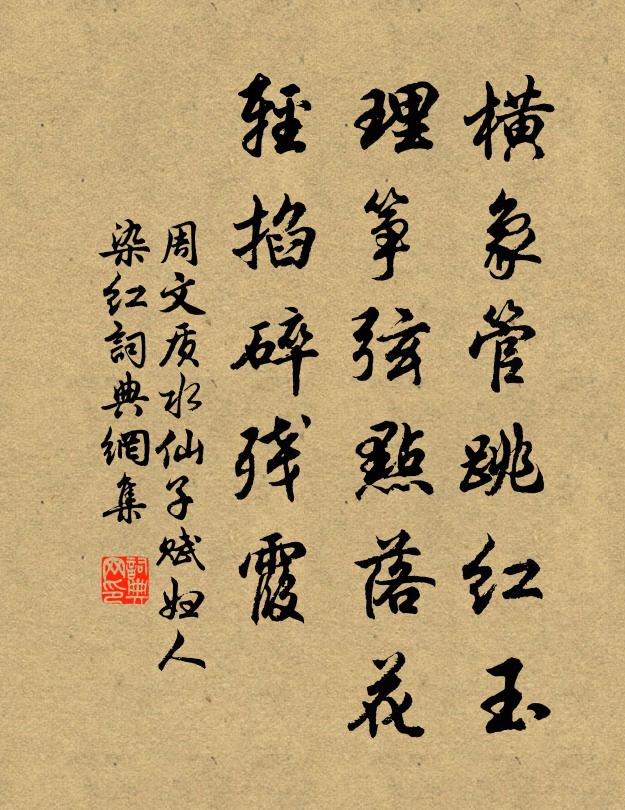 橫象管跳红玉
理筝弦點落花
輕掐碎残霞
周文质水仙子赋妇人
染红詞典網集
詞典网印